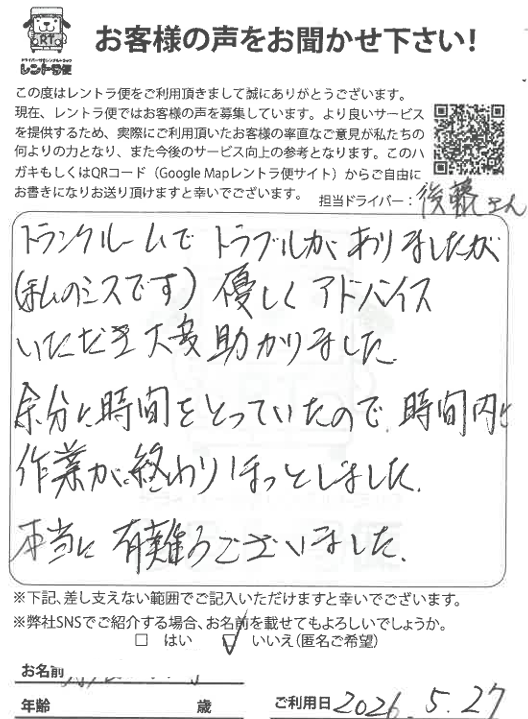 RT
ドライバー付きレンタルトラック
レントラ便
お客様の声をお聞かせ下さい！
この度はレントラ便をご利用頂きまして誠にありがとうございます。
現在、レントラ便ではお客様の声を募集しています。より良いサービス
を提供するため、実際にご利用頂いたお客様の率直なご意見が私たちの
何よりの力となり、また今後のサービス向上の参考となります。このハ
ガキもしくはQRコード（Google Mapレントラ便サイト）からご自由に
お書きになりお送り頂けますと幸いでございます。
担当ドライバー：後藤さん
トランクルームでトラブルがありましたが
(私のミスです) 優しくアドバイス
いただき大変助かりました.
余分に時間をとっていたので、時間内に
作業が終わりほっとしました.
本当に有難うございました.
※下記、差し支えない範囲でご記入いただけますと幸いでございます。
※弊社SNSでご紹介する場合、お名前を載せてもよろしいでしょうか。
□ はい ☑ いいえ（匿名ご希望）
お名前
年齢 歳 ご利用日 2026.5.27